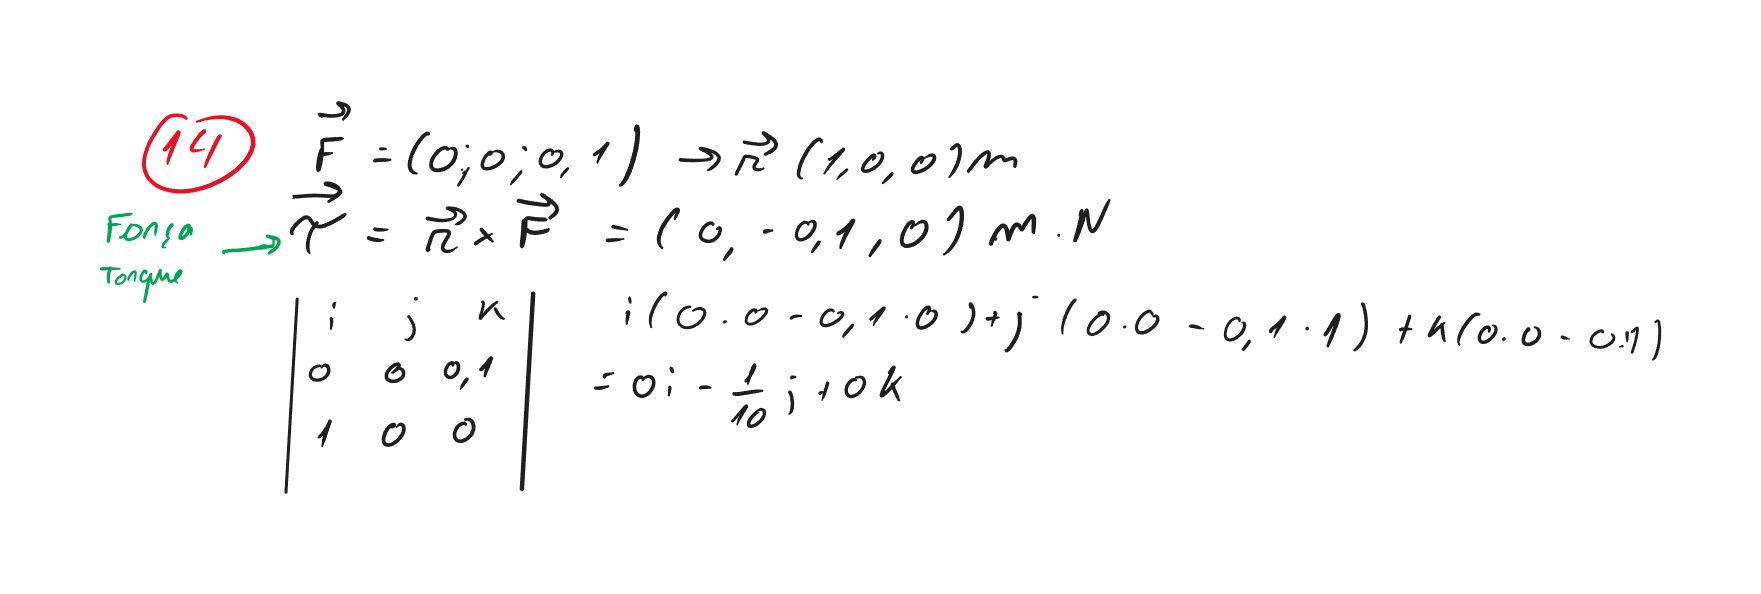 14 F⃗ = (0; 0; 0,1) → r⃗ (1,0,0) m
Força Torque → τ⃗ = r⃗ × F⃗ = (0, -0,1, 0) m . N
| i j k | i(0.0 - 0,1.0) + j(0.0 - 0,1.1) + k(0.0 - 0.1)
| 0 0 0,1 | = 0i - 1/10 j + 0k
| 1 0 0 |